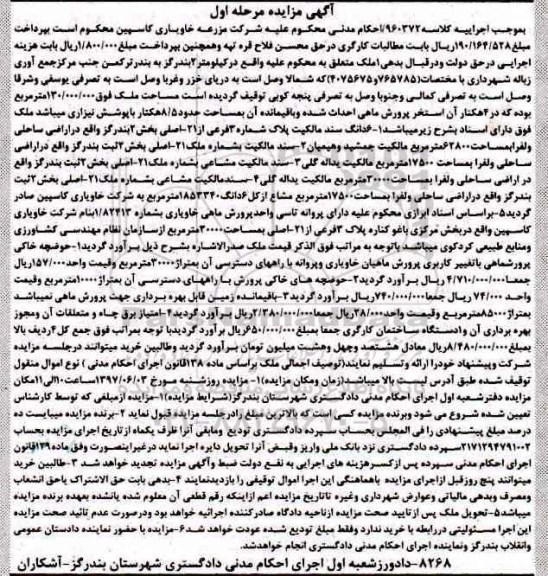 آگهی مزایده مرحله اول
بموجب اجراییه کلاسه ۹۶۰۳۷۲/احکام مدنی محکوم علیه شرکت مزرعه خاویاری کاسپین محکوم است بپرداخت
مبلغ ۱۹۰/۱۶۴/۵۲۸ریال بابت مطالبات کارگری درحق محسن فلاح قره تپه وهمچنین بپرداخت مبلغ ۱/۸۰۰/۰۰۰ریال بابت هزینه
اجرایی درحق دولت ودرقبال بدهی املک متعلق به محکوم علیه واقع درکیلومتر۲بندرگز به بندرترکمن جنب مرکزجمع آوری
زباله شهرداری با مختصات(۷۶۵۷۸۵و۴۰۷۵۶۷۵)که شمالا وصل است به دریای خزر وغربا وصل است به تصرفی یوسفی وشرقا
وصل است به تصرفی کمالی وجنوبا وصل به تصرفی پنجه کوبی توقیف گردیده است مساحت ملک فوق۱۳۰/۰۰۰مترمربع
بوده که در۴هکتار آن استخر پرورش ماهی احداث شده وباقیمانده آن بمساحت حدود۸/۵هکتار باپوشش نیزاری میباشد ملک
فوق دارای اسناد بشرح زیرمیباشد۱-۶دانگ سند مالکیت پلاک شماره۳فرعی از۲۱-اصلی بخش۲بندرگز واقع دراراضی ساحلی
ولفرابمساحت۶۲۸۰۰مترمربع مالکیت همشید وهیمیان۲-سند مالکیت بشماره ملک۲۱-اصلی بخش۲ثبت بندرگز واقع دراراضی
ساحلی ولفرا بمساحت ۱۷۵۰۰مترمربع مالکیت یداله گلی۳-سند مالکیت مشاعی بشماره ملک۲۱-اصلی بخش۲ثبت بندرگز واقع
در اراضی ساحلی ولفرا بمساحت۲۰۰۰۰مترمربع مالکیت یداله گلی۴-سندمالکیت مشاعی بشماره ملک۲۱-اصلی بخش۲ثبت
بندرگز واقع دراراضی ساحلی ولفرا بمساحت۱۷۵۰۰مترمربع مشاع ازکل۶دانگ۱۸۵۳۳۴۰مترمربع به شرکت خاویاری کاسپین صادر
گردید۵-براساس اسناد ابرازی محکوم علیه دارای پروانه تاسی واحدپرورش ماهی خاویاری بشماره ۱/۸۲۴۱۳بنام شرکت خاویاری
کاسپین واقع دربخش مرکزی باغو کناره پلاک ۳فرعی از۲۱-اصلی بمساحت۳۰۰۰۰مترمربع ازسازمان نظام مهندسی کشاورزی
ومنابع طبیعی کردکوی میباشد باتوجه به مراتب فوق الذکر قیمت ملک صدرالاشاره بشرح ذیل برآورد گردید۱-حوضچه خاکی
پرورشماهی باتغییر کاربری پرورش ماهیان خاویاری وپروانه با راههای دسترسی آن بمتراژ۳۰۰۰۰مترمربع وقیمت واحد۱۵۷/۰۰۰ریال
جمعا۴/۷۱۰/۰۰۰/۰۰۰ ریال برآورد گردید۲-حوضچه های خاکی پرورش با راههای دسترسی آن بمتراژ۱۰۰۰۰مترمربع وقیمت
واحد ۷۴/۰۰۰ ریال جمعا۷۴۰/۰۰۰/۰۰۰ریال برآورد گردید۳-باقیمانده زمین قابل بهره برداری جهت پرورش ماهی نمیباشد
بمتراژ۸۵۰۰۰مترمربع وقیمت واحد۲۸/۰۰۰ریال جمعا۲/۳۸۰/۰۰۰/۰۰۰ریال برآورد گردید۴-امتیاز برق چاه و متعلقات آن ومجوز
بهره برداری آن و۱دستگاه ساختمان کارگری جمعا بمبلغ۶۵۰/۰۰۰/۰۰۰ریال برآورد گردیدبا توجه بمراتب فوق جمع کل۴ردیف بالا
بمبلغ۸/۴۸۰/۰۰۰/۰۰۰ریال معادل هشتصد وچهل وهشت میلیون تومان برآورد گردید وطالبین خرید میتوانند درجلسه مزایده
شرکت وپیشنهاد خودرا ارائه وتسلیم نمایند(توصیف اجمالی ملک براساس ماده ۱۳۸قانون اجرای احکام مدنی ) نوع اموال منقول
توقیف شده طبق آدرس لیست بالا میباشد(زمان ومکان مزایده)۱-مزایده روزشنبه مورخ ۱۳۹۷/۰۶/۰۳ ساعت۱۰الی۱۱مکان
مزایده دفترشعبه اول اجرای احکام مدنی دادگستری شهرستان بندرگز(شرایط مزایده)۱-مزایده ازمبلغی که توسط کارشناس
تعیین شده شروع می شود وبرنده مزایده کسی است که بالاترین مبلغ رادرجلسه مزایده قبول نماید ۲-برنده مزایده میبایست ده
درصد مبلغ پیشنهادی را فی المجلس بحساب سپرده دادگستری تودیع ومابقی آنرا ظرف یکماه ازتاریخ اجرای مزایده بحساب
۲۱۷۱۲۹۴۷۹۱۰۰۲سپرده دادگستری نزد بانک ملی واریز وقبض آنرا تحویل دایره اجرا نماید درغیراینصورت وفق ماده ۱۲۹قانون
اجرای احکام مدنی سپرده پس ازکسرهزینه های اجرایی به نفع دولت ضبط وآگهی مزایده تجدید خواهد شد ۳-طالبین خرید
میتوانند پنج روزقبل ازاجرای مزایده باهماهنگی این اجرا اموال توقیفی را بازدیدنمایند ۴-بدهی بابت حق الاشتراک یاحق انشعاب
ومصرف وبدهی مالیاتی وعوارض شهرداری وغیره تاتاریخ مزایده اعم ازاینکه رقم قطعی آن معلوم شده یانشده بعهده برنده مزایده
میباشد۵-تحویل ملک پس ازتایید صحت مزایده ازناحیه دادگاه صادرکننده اجرائیه خواهد بود ودرصورت عدم تائید صحت مزایده
این اجرا مسئولیتی دررابطه با خرید ندارد وفقط مبلغ تودیع شده عودت خواهد شد۶-مزایده با حضور نماینده دادستان عمومی
وانقلاب بندرگز ونماینده اجرای احکام مدنی دادگستری انجام خواهدشد.
۸۲۶۸-دادورزشعبه اول اجرای احکام مدنی دادگستری شهرستان بندرگز-آشکاران